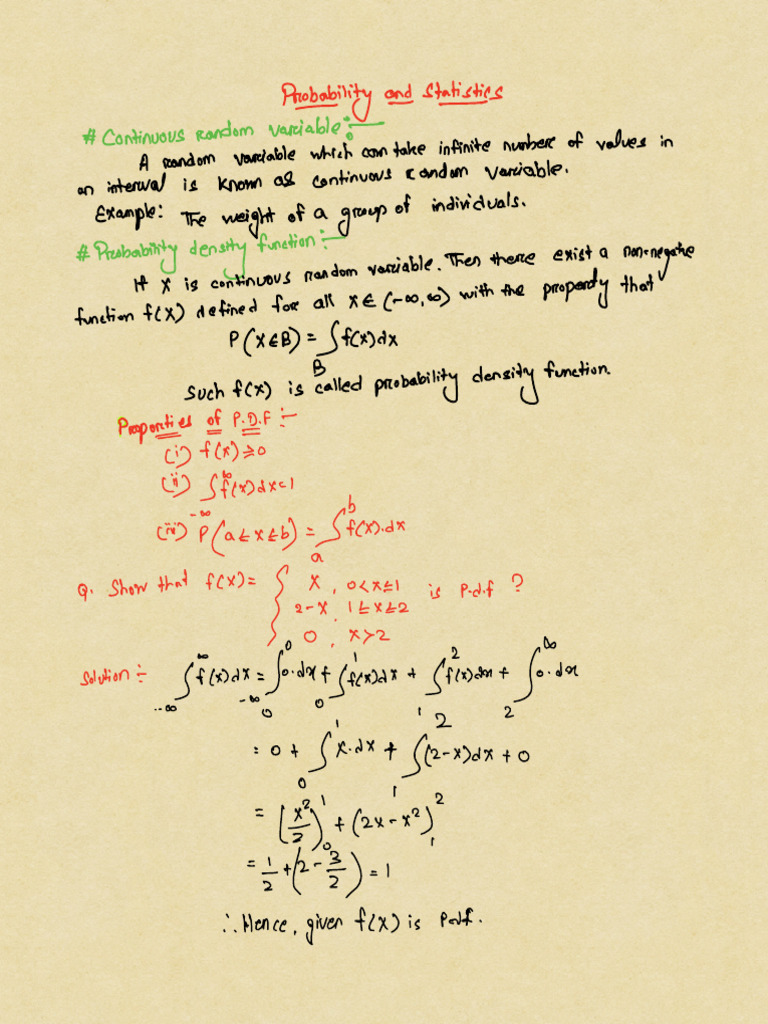 Probability and Statistics
# Continuous Random variable :-
A random variable which can take infinite number of values in
an interval is known as continuous random variable.
Example: The weight of a group of individuals.
# Probability density function :-
If X is continuous random variable. Then there exist a non-negative
function f(X) defined for all x ∈ (-∞, ∞) with the property that
P(X∈B) = ∫_B f(x)dx
Such f(x) is called probability density function.
Properties of P.D.F :-
(i) f(x) ≥ 0
(ii) ∫_{-∞}^{∞} f(x)dx = 1
(iii) P(a ≤ x ≤ b) = ∫_a^b f(x).dx
Q. Show that f(x) = { x , 0 < x ≤ 1 is P.d.f ?
2-x , 1 ≤ x ≤ 2
0 , x > 2
Solution :- ∫_{-∞}^{∞} f(x)dx = ∫_{-∞}^{0} 0.dx + ∫_0^1 f(x)dx + ∫_1^2 f(x)dx + ∫_2^∞ 0.dx
= 0 + ∫_0^1 x.dx + ∫_1^2 (2-x)dx + 0
= (x²/2)_0^1 + (2x - x²)_1^2
= 1/2 + (2 - 3/2) = 1
∴ Hence, given f(x) is p.d.f.